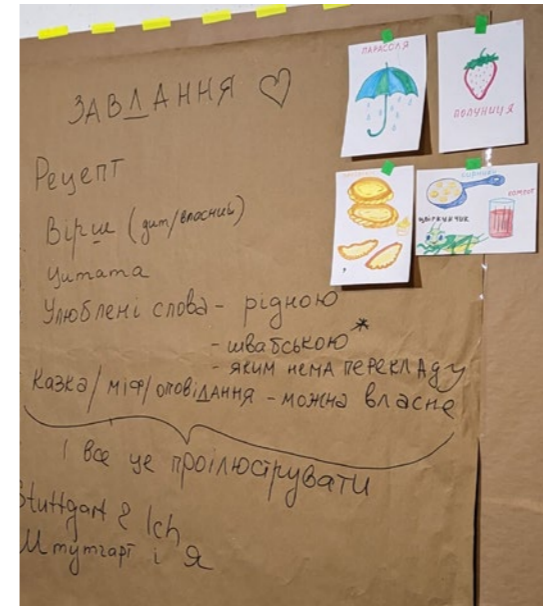 ЗАВДАННЯ
Рецепт
Вірш (дит/власний)
Цитата
Улюблені слова - рідною
- швабською*
- яким нема перекладу
Казка/міф/оповідання - можна власне
І все це проілюструвати
Stuttgart & Ich
Штутгарт і Я
ПАРАСОЛЯ
ПОЛУНИЦЯ
КОМПОТ
ЦВІРКУНЧИК